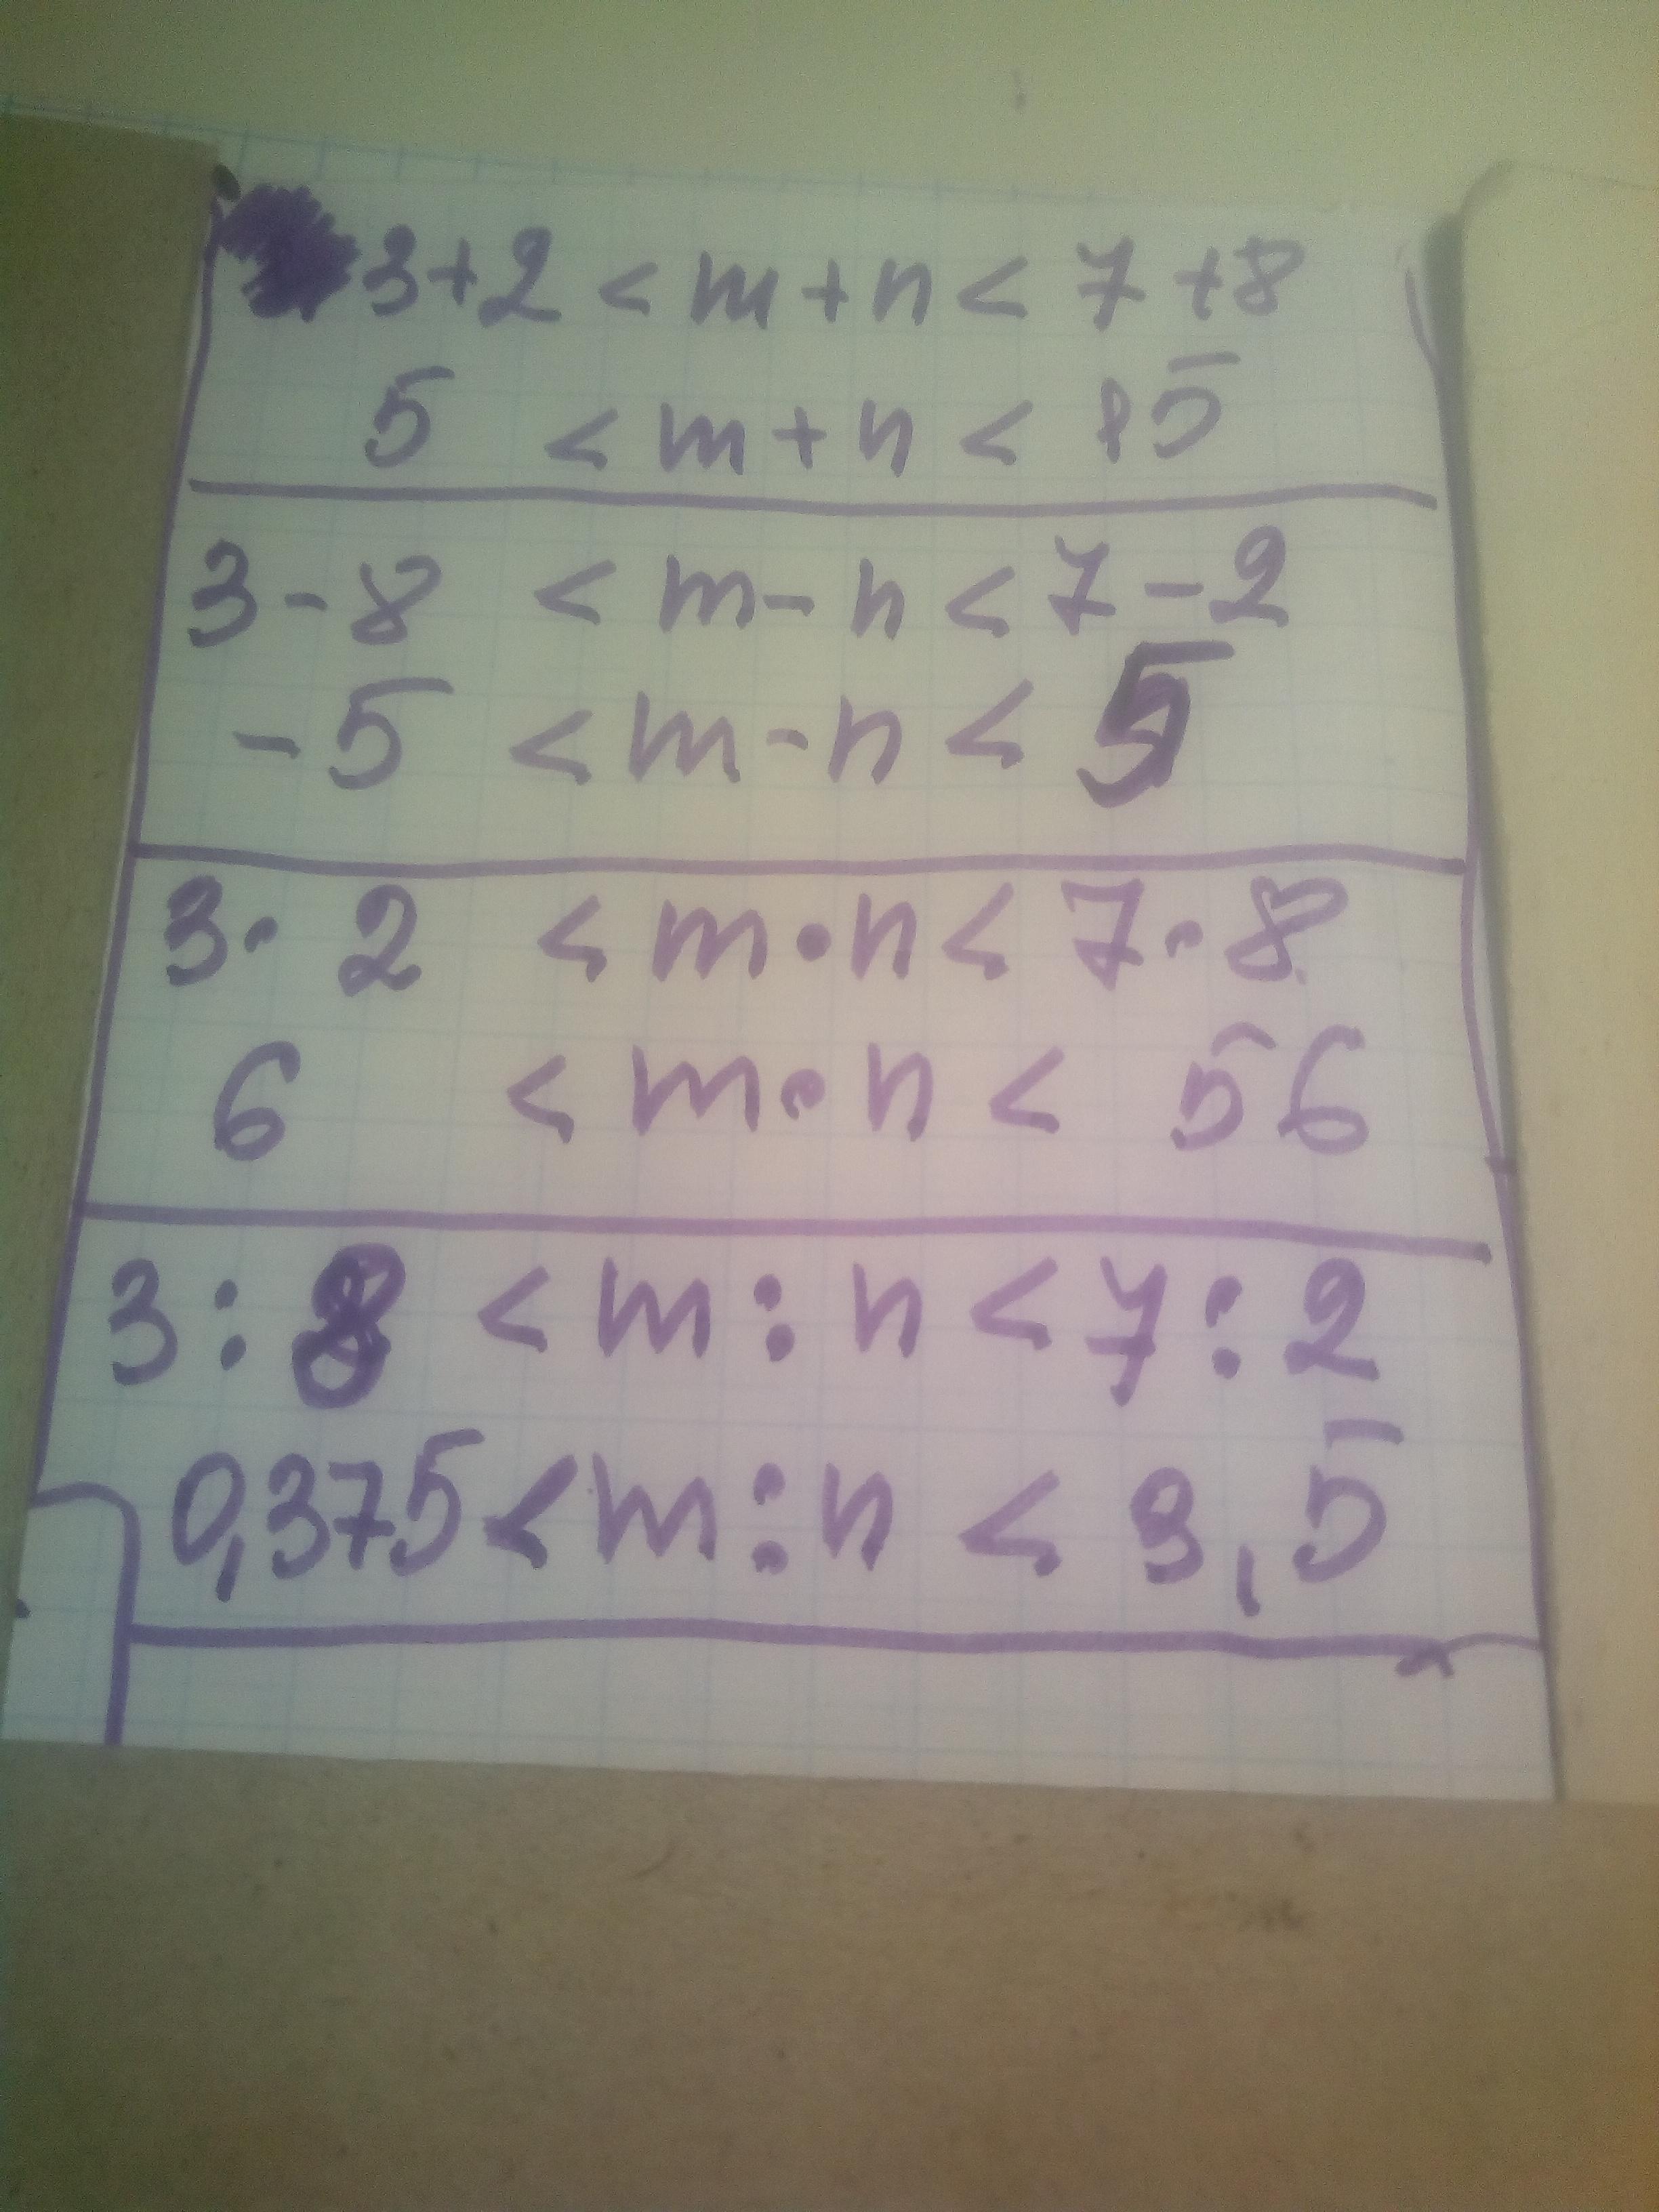 3+2 < m+n < 7+8
5 < m+n < 15
3-8 < m-n < 7-2
-5 < m-n < 5
3· 2 < m·n < 7·8
6 < m·n < 56
3:8 < m:n < 7:2
0,375 < m:n < 3,5